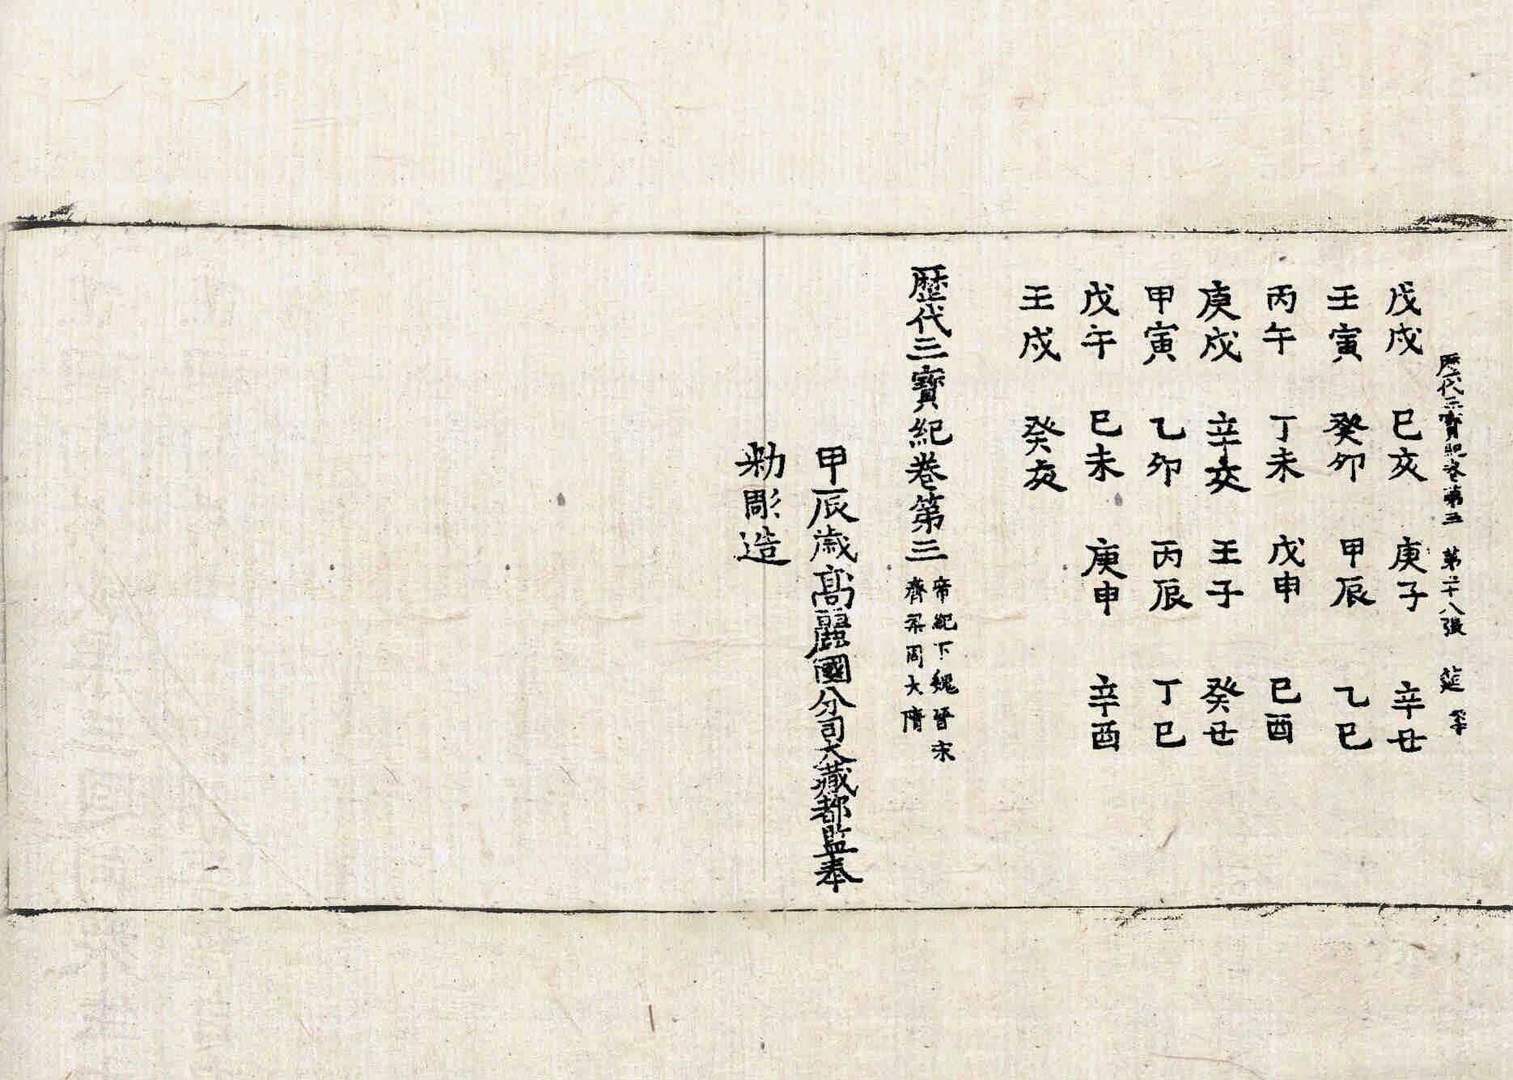 歷代三寶紀卷第三 第二十八張 筵
戊戌 巳亥 庚子 辛丑
壬寅 癸卯 甲辰 乙巳
丙午 丁未 戊申 巳酉
庚戌 辛亥 壬子 癸丑
甲寅 乙卯 丙辰 丁巳
戊午 巳未 庚申 辛酉
壬戌 癸亥
歷代三寶紀卷第三 帝紀下魏晉宋
齊梁周大隋
甲辰歲高麗國分司大藏都監奉
勑彫造